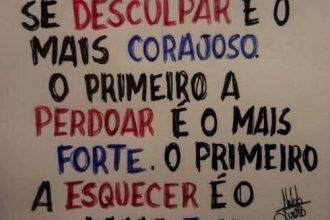 SE DESCULPAR É O
MAIS CORAJOSO.
O PRIMEIRO A
PERDOAR É O MAIS
FORTE. O PRIMEIRO
A ESQUECER É O